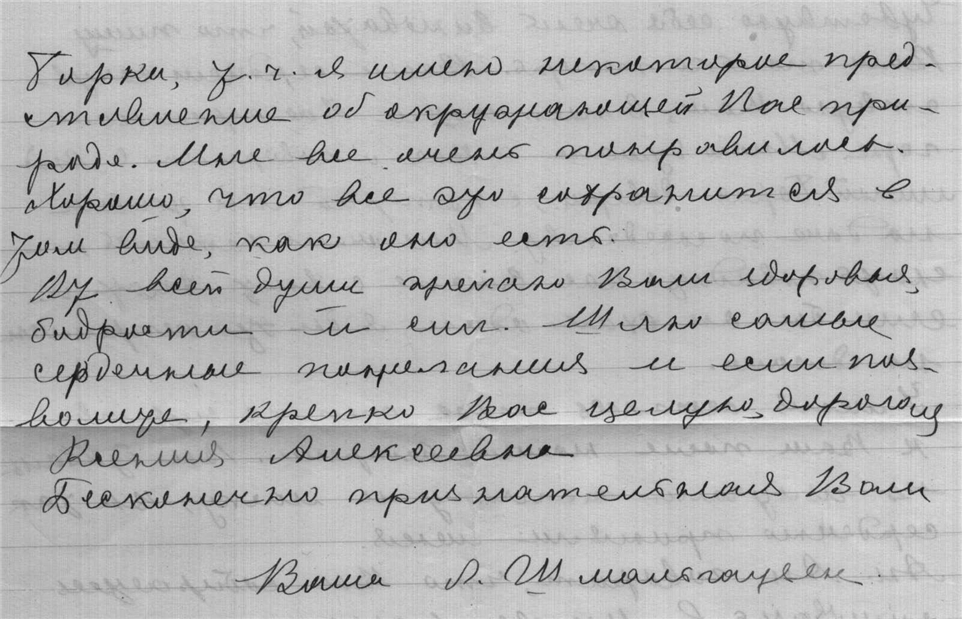 Горки, т. ч. я имею некоторое пред-
ставление об окружающей Вас при-
роде. Мне все очень понравилось.
Хорошо, что все это сохранится в
том виде, как оно есть.
От всей души желаю Вам здоровья,
бодрости и сил. Шлю самые
сердечные пожелания и если поз-
волите, крепко Вас целую, дорогая
Ксения Алексеевна
Бесконечно признательная Вам
Ваша Л. Шмальгаузен.